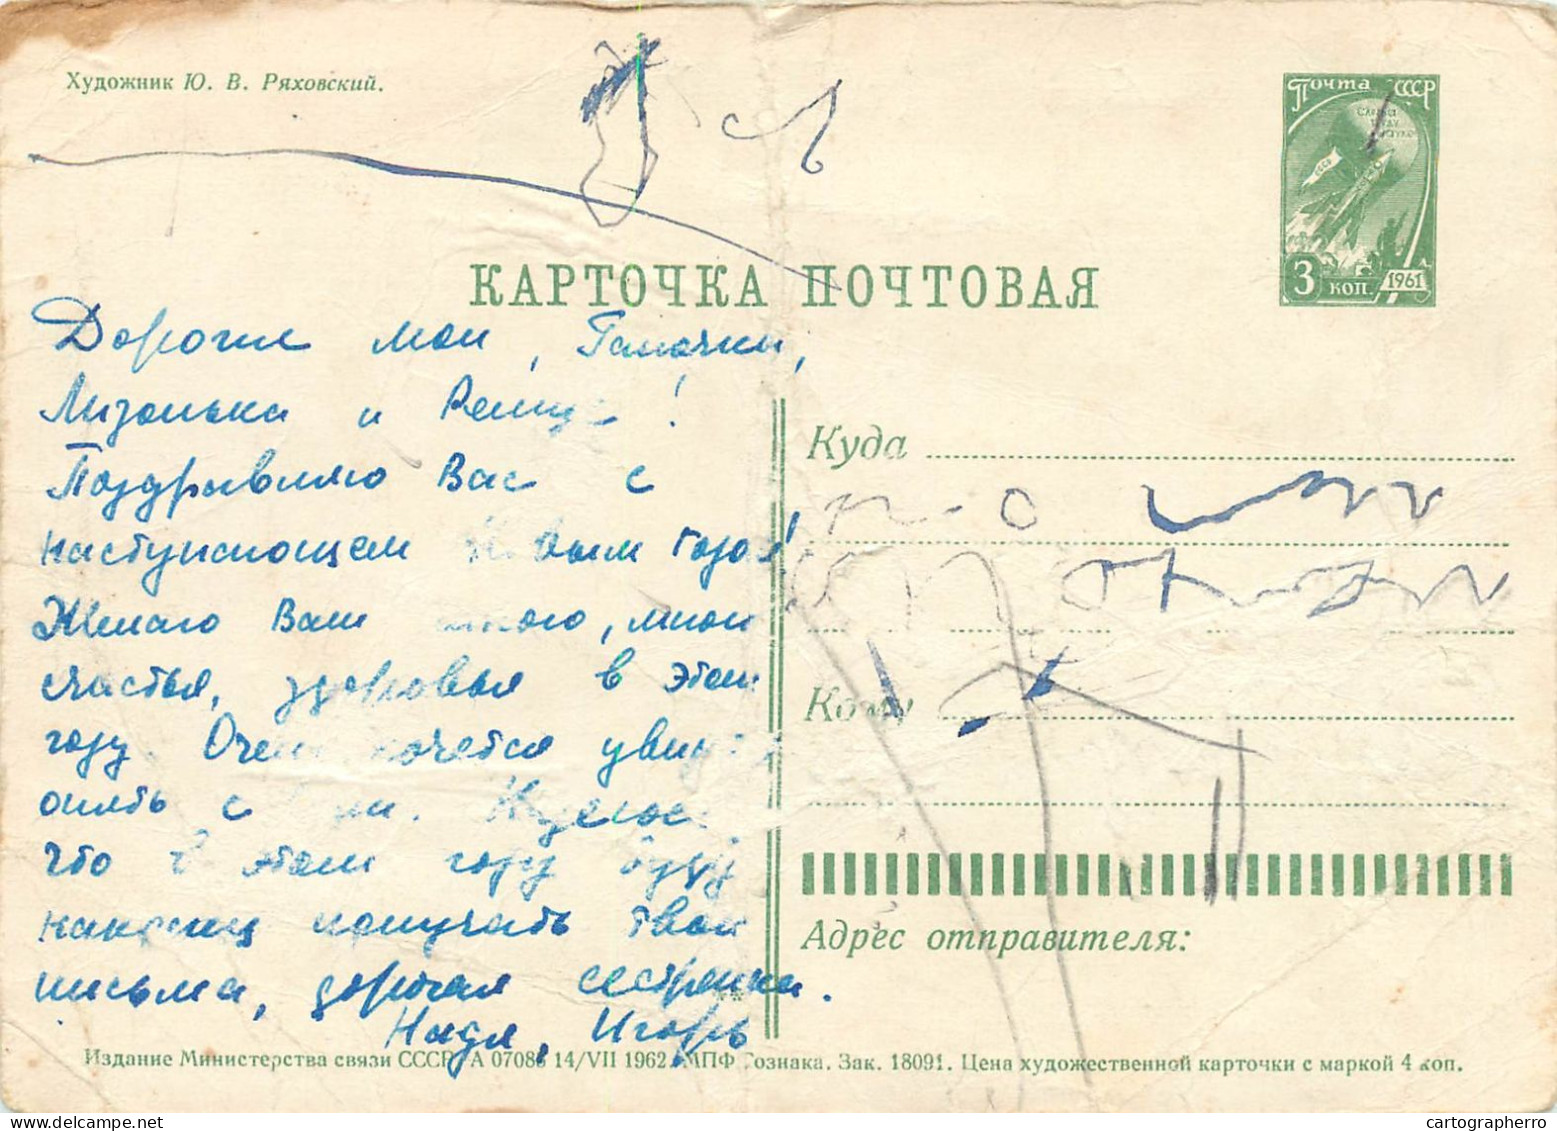 Художник Ю. В. Ряховский.
Почта СССР
3 коп. 1961
КАРТОЧКА ПОЧТОВАЯ
Дорогие мои,
Лизонька и !
Поздравляю Вас с
наступающем Новым годом!
Желаю Вам много, много
счастья, здоровья в этом
году. Очень хочется увидеть
опять с Вами. Надеюсь
что в этом году буду
наконец получать твои
письма, дорогая сестренка.
Надя, Игорь
Куда
Кому
Адрес отправителя:
Издание Министерства связи СССР. А 07086 14/VII 1962 МПФ Гознака. Зак. 18091. Цена художественной карточки с маркой 4 коп.
cartographerro